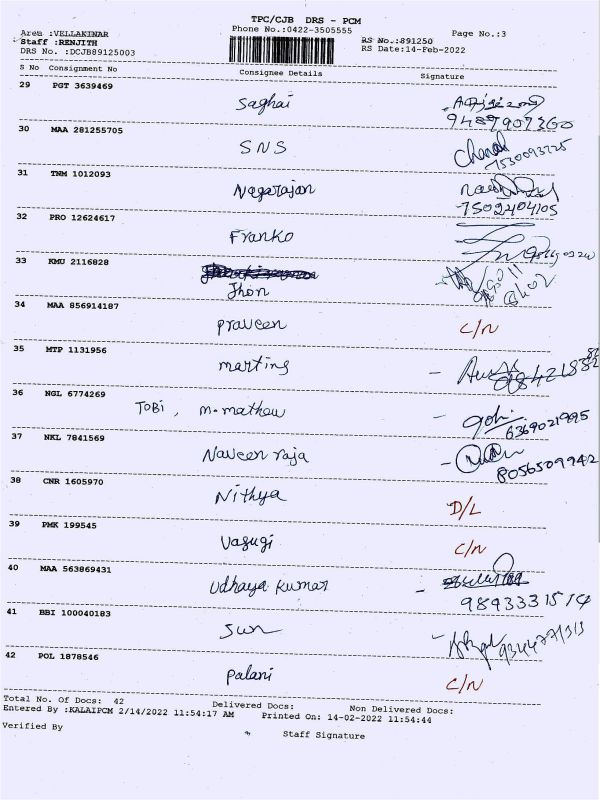 TPC/CJB DRS - PCM
Area :VELLAKINAR Phone No.:0422-3505555 Page No.:3
Staff :RENJITH RS No.:891250
DRS No. :DCJB89125003 RS Date:14-Feb-2022
S No Consignment No Consignee Details Signature
29 PGT 3639469
Saghai
30 MAA 281255705
SNS
31 TNM 1012093
Nagarajan
7502404105
32 PRO 12624617
Franko
33 KMU 2116828
Jhon
34 MAA 856914187
Praveen C/N
35 MTP 1131956
martins
36 NGL 6774269
TOBi, M.mathew gobi
6369021995
37 NKL 7841569
Naveen raja
8056509942
38 CNR 1605970
Nithya D/L
39 PMK 199545
Vasugi C/N
40 MAA 563869431
Udhaya Kumar
9893331514
41 BBI 100040183
Sun
42 POL 1878546
Palani C/N
Total No. Of Docs: 42 Delivered Docs: Non Delivered Docs:
Entered By :KALAIPCM 2/14/2022 11:54:17 AM Printed On: 14-02-2022 11:54:44
Verified By Staff Signature